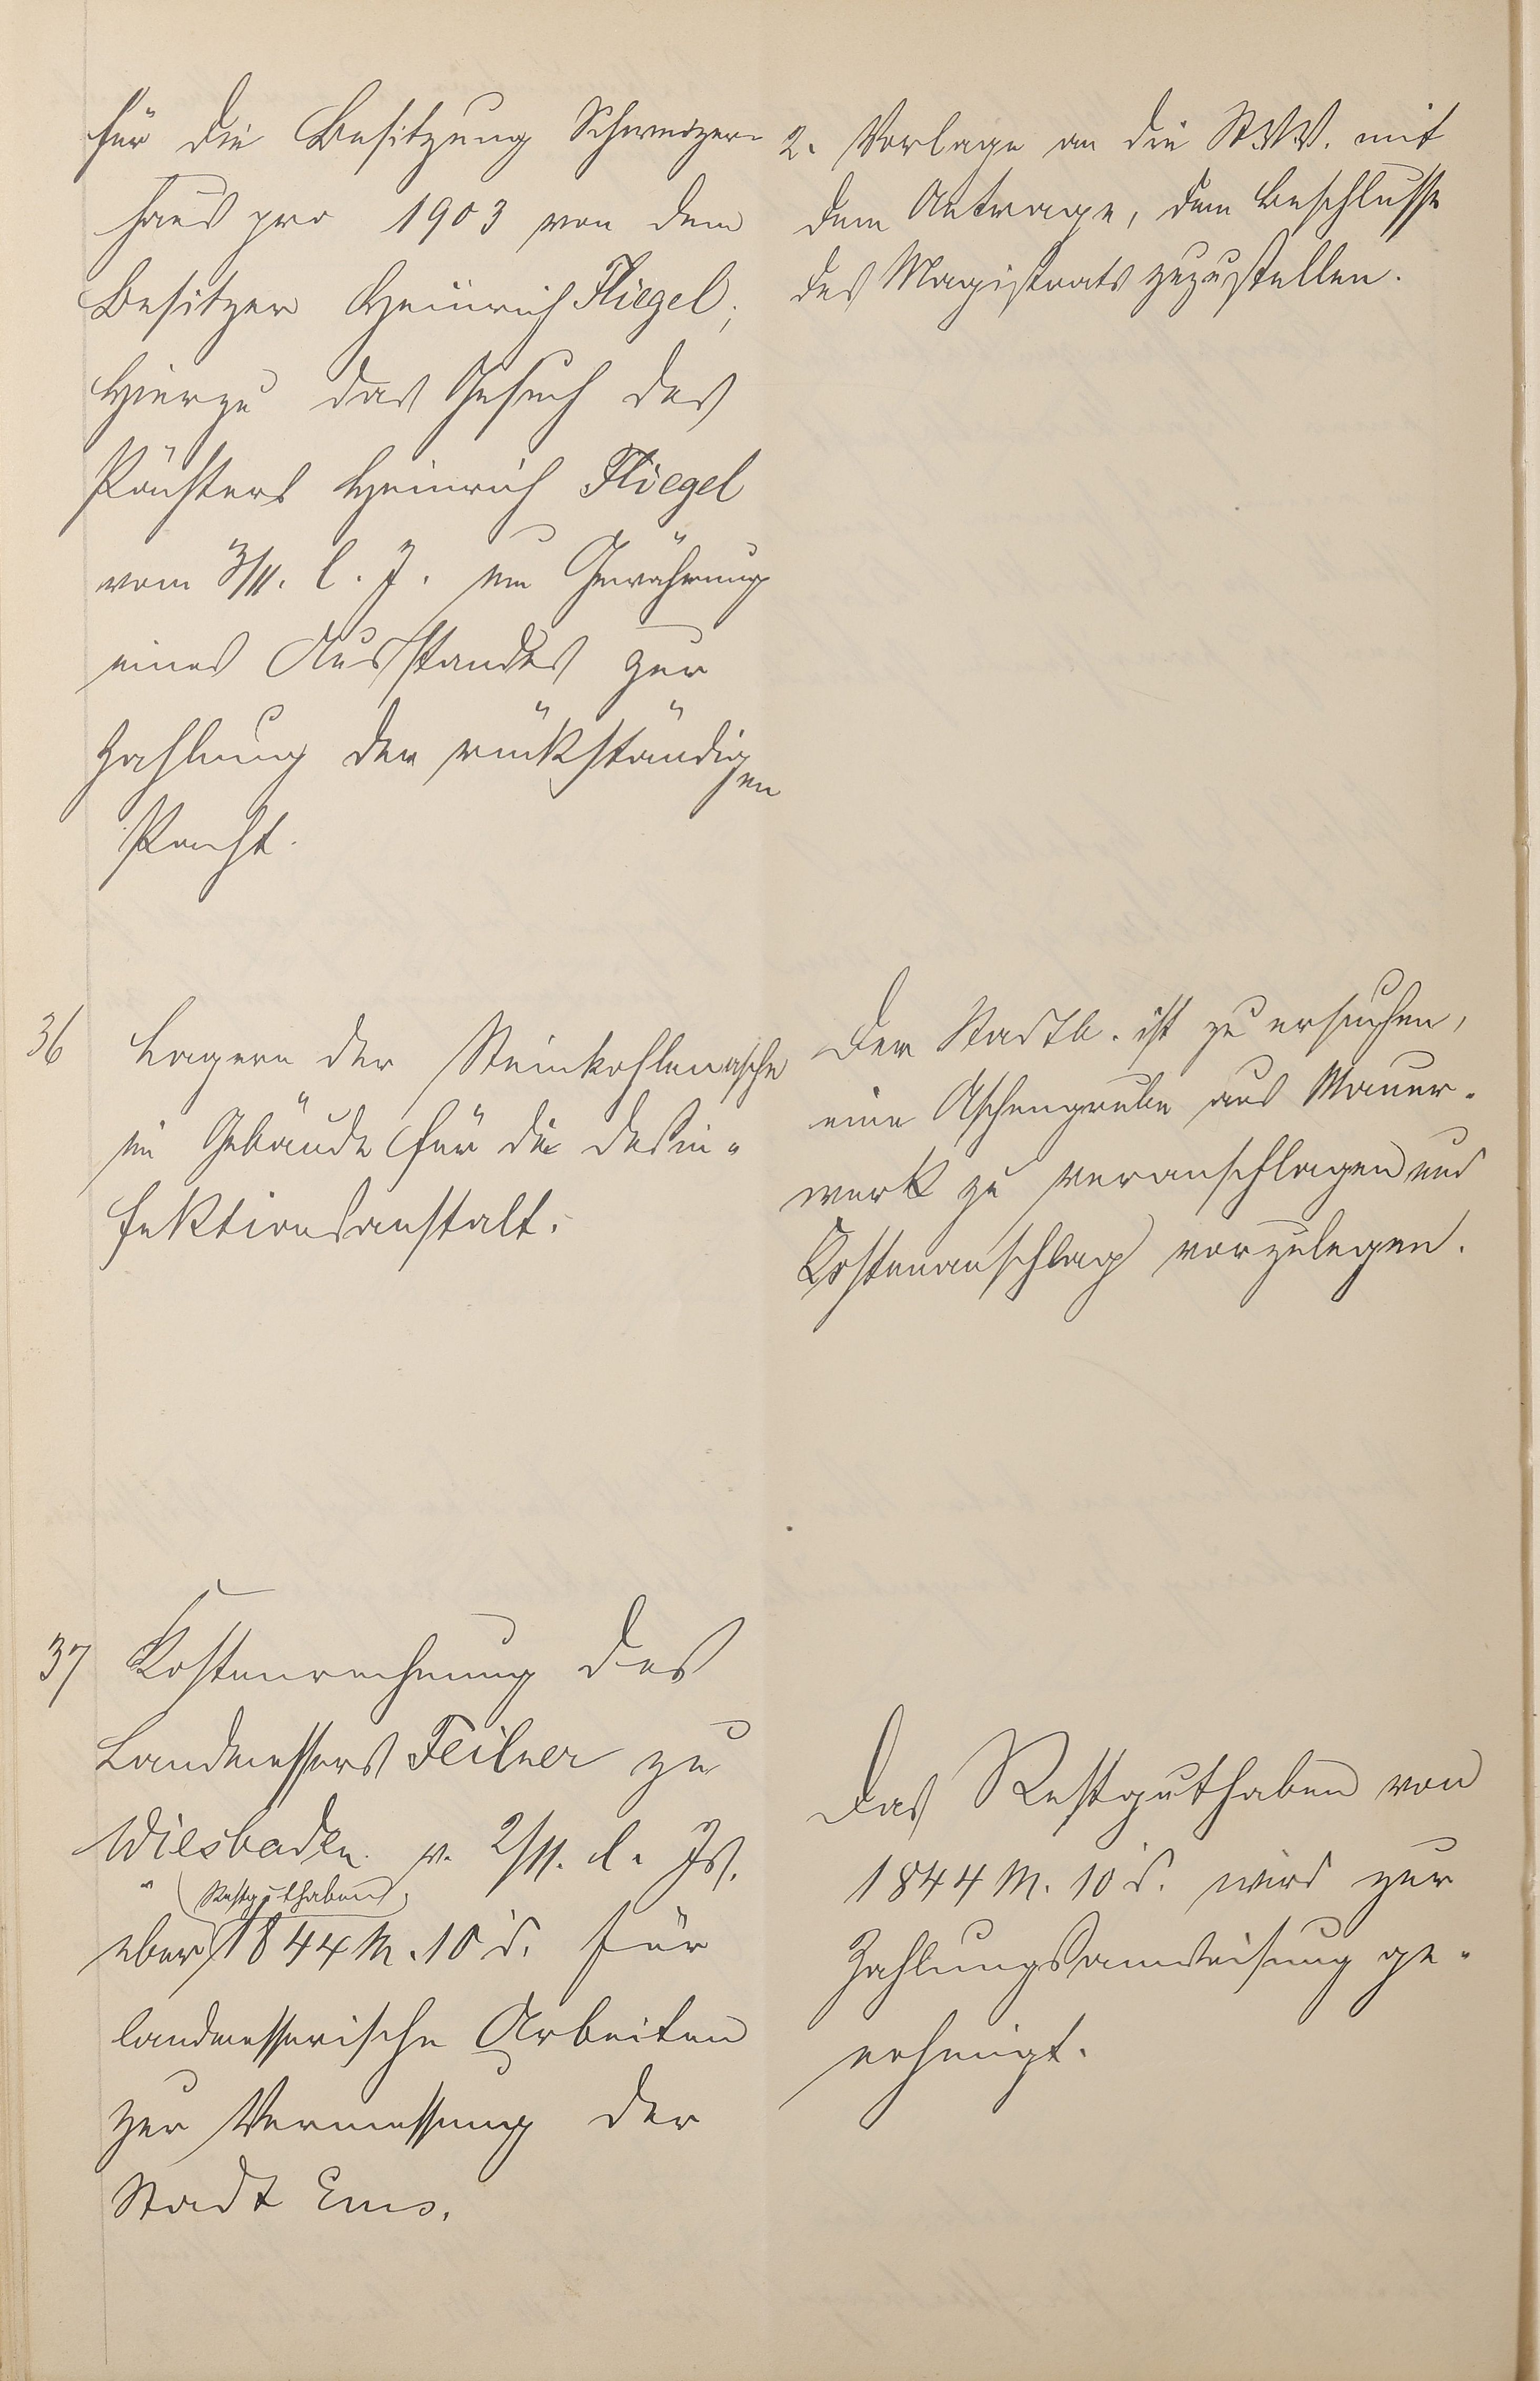 für die Besitzung Schweizer-
haus pro 1903 von dem
Besitzer Heinrich Fliegel;
Hierzu das Gesuch des
Pächters Heinrich Fliegel
vom 3/11. l. J. um Gewährung
eines Ausstandes zur
Zahlung der rückständigen
Pacht.
2. Vorlage an die StVV. mit
dem Antrage, dem Beschlusse
des Magistrats zuzustellen.
36 Lagern der Steinkohlenasche
im Gebäude für die Desin-
fektionsanstalt.
Der Stadtb. ist zu ersuchen,
eine Aschengrube aus Mauer-
werk zu veranschlagen und
Kostenanschlag vorzulegen.
37 Kostenrechnung des
Landmessers Feilner zu
Wiesbaden v. 2/11. l. Js.
Restguthaben
über 1844 M. 10 d. für
landmesserische Arbeiten
zur Vermessung der
Stadt Ems.
Das Restguthaben von
1844 M. 10 d. wird zur
Zahlungsanweisung ge-
nehmigt.